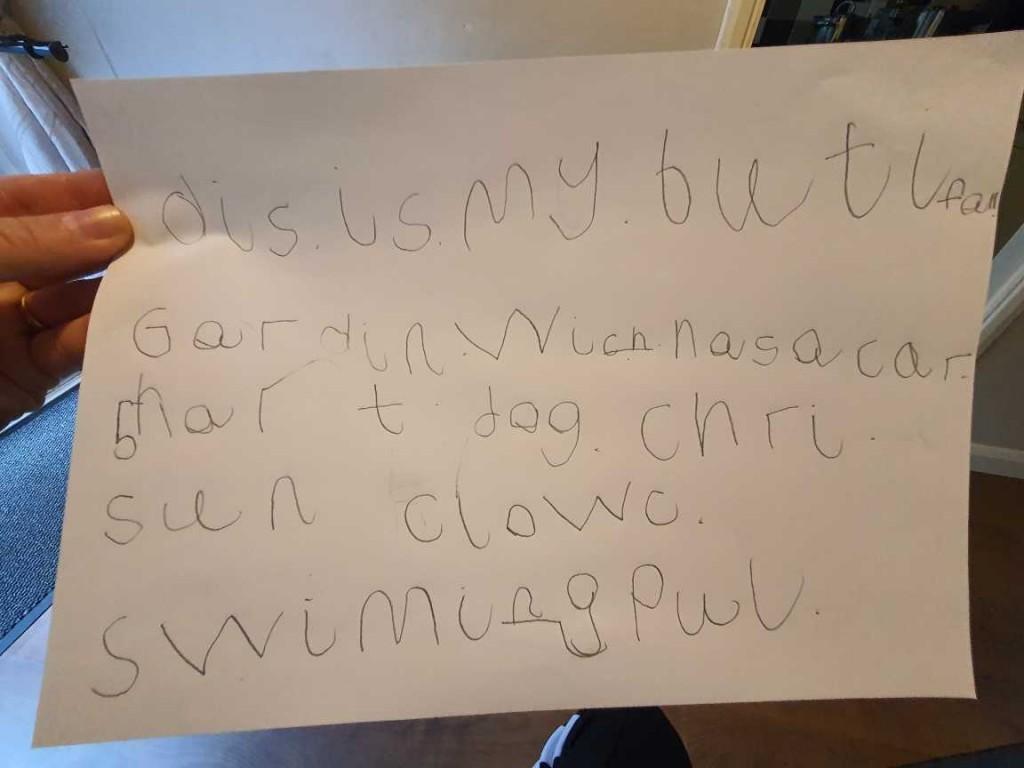 dis.is.my.butlfan
Gardin.wich.has a car.
hart.dog.chri.
sun clowc.
swimingpul.